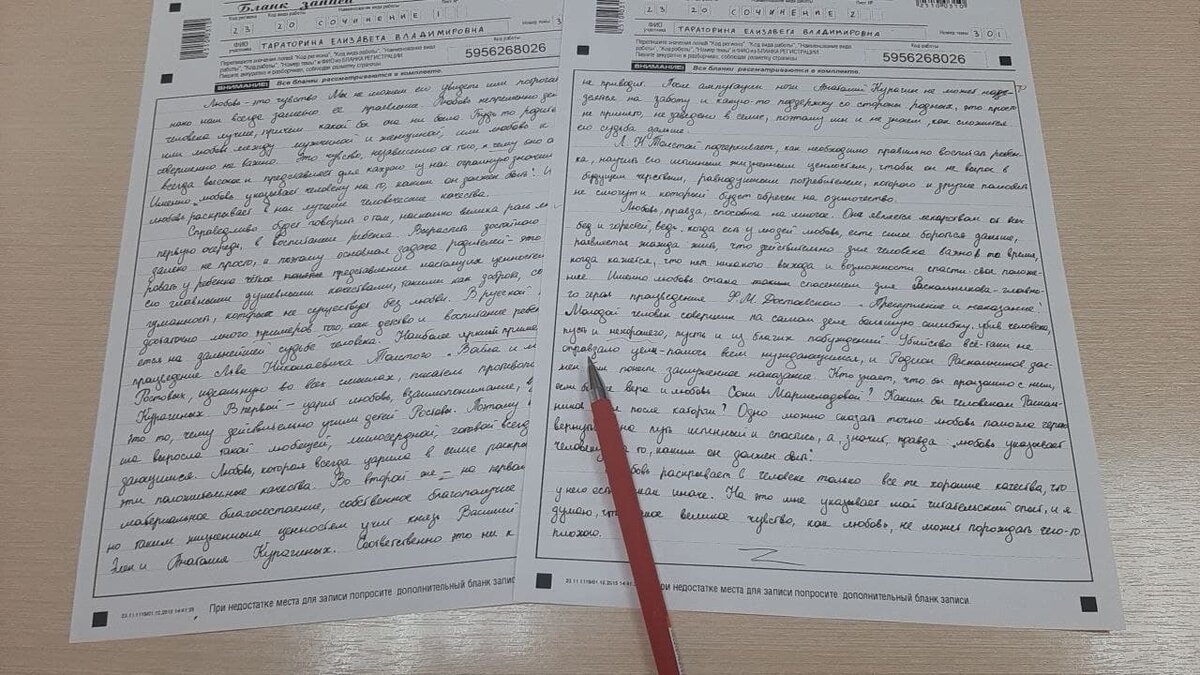 Бланк записи
Код региона Код вида работы Наименование вида работы Лист №
23 20 СОЧИНЕНИЕ 1
ФИО участника ТАРАТОРИНА ЕЛИЗАВЕТА ВЛАДИМИРОВНА Номер темы 3
Перепишите значения полей "Код региона", "Код вида работы", "Наименование вида
работы", "Номер темы" и ФИО из БЛАНКА РЕГИСТРАЦИИ.
Пишите аккуратно и разборчиво, соблюдая разметку страницы
Код работы
5956268026
ВНИМАНИЕ! Все бланки рассматриваются в комплекте.
Любовь - это чувство. Мы не можем его увидеть или потрогать
нако нам всегда заметно её проявление. Любовь непременно дел
человека лучше, причём какой бы она ни была. Будь то родитель
или любовь между мужчиной и женщиной, или любовь к
совершенно не важно. Это чувство, независимо от того, к чему оно
всегда высокое и представляет для каждого из нас огромную значим
Именно "любовь указывает человеку на то, каким он должен быть". И
любовь раскрывает в нас лучшие человеческие качества.
Справедливо будет говорить о том, насколько велика роль
первую очередь, в воспитании ребёнка. Вырастить достойного
далеко не просто, а поэтому основная задача родителей - это
ровать у ребёнка чёткое представление настоящих ценностей
его главными душевными качествами, такими как доброта, со
гуманность, которые не существуют без любви. В русской
достаточно много примеров того, как детство и воспитание ребён
ется на дальнейшей судьбе человека. Наиболее яркий пример
произведение Льва Николаевича Толстого "Война и м
Ростовых, идеальную во всех смыслах, писатель противопо
Курагиных. В первой - царит любовь, взаимопонимание,
это то, чему действительно учили детей Ростовы. Поэтому
ша выросла такой любящей, милосердной, готовой всегд
дающимся. Любовь, которая всегда царила в семье раскры
эти положительные качества. Во второй же - на первом
материальное благосостояние, собственное благополучие
но таким жизненным ценностям учил князь Василий
Элен и Анатоля Курагиных. Соответственно это ни к
При недостатке места для записи попросите дополнительный бланк записи
23 20 СОЧИНЕНИЕ 2
ФИО участника ТАРАТОРИНА ЕЛИЗАВЕТА ВЛАДИМИРОВНА Номер темы 301
Перепишите значения полей "Код региона", "Код вида работы", "Наименование вида
работы", "Номер темы" и ФИО из БЛАНКА РЕГИСТРАЦИИ.
Пишите аккуратно и разборчиво, соблюдая разметку страницы
Код работы
5956268026
ВНИМАНИЕ! Все бланки рассматриваются в комплекте.
не приводит. После ампутации ноги Анатолий Курагин не может наде-
деятся на заботу и какую-то поддержку со стороны родных, это просто
не принято, не заведено в семье, поэтому мы и не знаем, как сложится
его судьба дальше.
Л. Н Толстой подчёркивает, как необходимо правильно воспитать ребён-
ка, научить его истинным жизненным ценностям, чтобы он не вырос в
будущем черствым, равнодушным потребителем, которого и другие полюбить
не смогут и который будет обречен на одиночество.
Любовь, правда, способна на многое. Она является лекарством от всех
бед и горестей, ведь, когда есть у людей любовь, есть силы бороться дальше,
появляется жажда жить, что действительно для человека важно в то время,
когда кажется, что нет никакого выхода и возможности спасти свое положе-
ние. Именно любовь стала таким спасением для Раскольникова - главно-
го героя произведения Ф.М. Достоевского "Преступление и наказание".
Молодой человек совершил на самом деле большую ошибку, убив человека,
пусть и нехорошего, пусть и из благих побуждений. Убийство всё-таки не
оправдало цели - помочь всем нуждающимся, и Родион Раскольников дол-
жен понести заслуженное наказание. Кто знает, что бы произошло с ним,
если бы не вера и любовь Сони Мармеладовой? Каким бы человеком Расколь-
ников после каторги? Одно можно сказать точно любовь помогла герою
вернуться на путь истинный и спастись, а, значит, правда "любовь указывает
человеку на то, каким он должен быть".
Любовь раскрывает в человеке только все те хорошие качества, что
у него есть, иначе. На это мне указывает мой читательский опыт, и я
думаю, что такое великое чувство, как любовь, не может порождать чего-то
плохого.
При недостатке места для записи попросите дополнительный бланк записи.